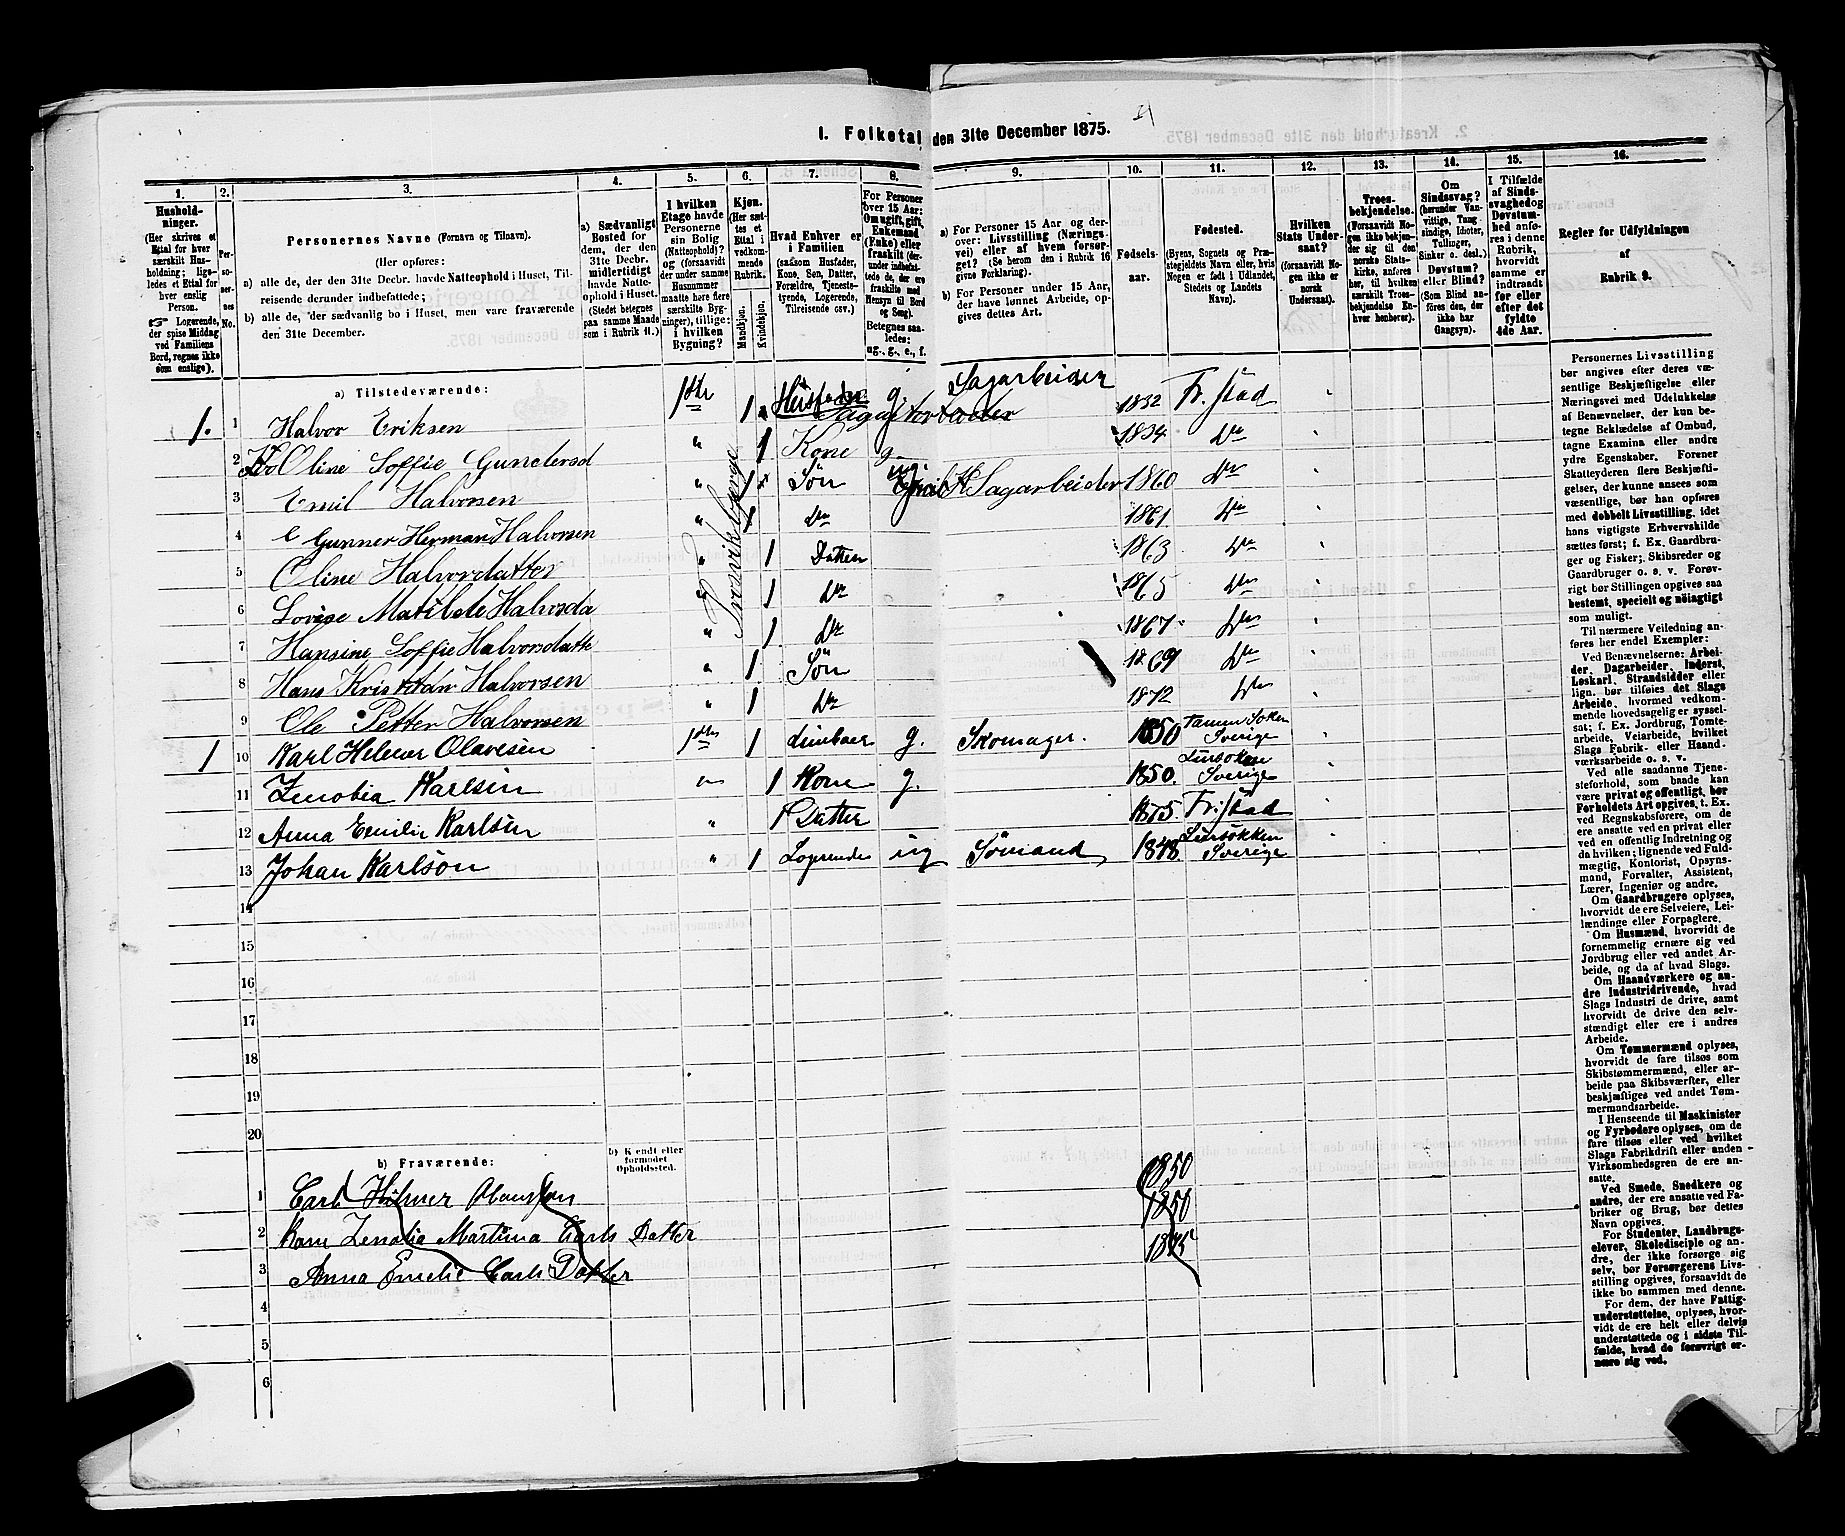 I. Folketal den 31te December 1875.
1. 2. 3. 4. 5. 6. 7. 8. 9. 10. 11. 12. 13. 14. 15. 16.
Hushold-
ninger.
(Her skrives et
Ettal for hver
særskilt Hus-
holdning; lige-
ledes et Ettal for
hver enslig
Person.
☞ Logerende,
der spise Middag
ved Familiens
Bord, regnes ikke
som enslige).
Per-
so-
ner-
nes
No.
Personernes Navne (Fornavn og Tilnavn).
(Her opføres:
a) alle de, der den 31te Decbr. havde Natteophold i Huset, Til-
reisende derunder indbefattede;
b) alle de, der sædvanlig bo i Huset, men vare fraværende
den 31te December.
a) Sædvanligt
Bosted for
dem, der den
31te Decbr.
midlertidigt
havde Natte-
ophold i Huset.
(Stedet betegnes
paa samme Maade
som i Rubrik 11.)
I hvilken
Etage havde
Personerne
sin Bolig
(Natteophold)?
og (forsaavidt
der under samme
Husnummer
maatte høre flere
særskilte Byg-
ninger), tillige:
i hvilken
Bygning?
Kjøn.
(Her sæt-
tes et
Ettal i
vedkom-
mende
Rubrik.
Mandkjøn.
Kvindekjøn.
Hvad Enhver er
i Familien
(saasom Husfader,
Kone, Søn, Datter,
Forældre, Tjeneste-
tyende, Logerende,
Tilreisende osv.)
For Personer
over 15 Aar:
Om ugift, gift,
Enkemand
(Enke) eller
fraskilt (der-
under indbefat-
tede de, der ere
fraskilte med
Hensyn til Bord
og Seng).
Betegnes saa-
ledes:
ug., g., e., f.
a) For Personer 15 Aar og der-
over: Livsstilling (Nærings-
vei) eller af hvem forsør-
get? (Se herom den i Rubrik 16
givne Forklaring).
b) For Personer under 15 Aar,
der have lønnet Arbeide, op-
gives dettes Art.
Fødsels-
aar.
Fødested.
(Byens, Sognets og Præ-
stegjeldets Navn eller, hvis
Nogen er født i Udlandet,
Stedets og Landets
Navn).
Hvilken
Stats Under-
saat?
(forsaavidt No-
gen ikke er
norsk
Undersaat).
Troes-
bekjendelse.
(Forsaavidt No-
gen ikke bekjen-
der sig til den
norske Stats-
kirke, anføres
her, til hvilken
særskilt Troes-
bekjendelse En-
hver henhører).
Om
Sindssvag?
(herunder Van-
vittige, Tung-
sindige, Idioter,
Tullinger,
Sinker o. desl.)
Døvstum?
eller Blind?
(Som Blind an-
føres den, der
ikke har
Gangsyn).
I Tilfælde
af Sinds-
svaghed og
Døvstum-
hed anfø-
res i denne
Rubrik,
hvorvidt
samme er
indtraadt
før eller
efter det
fyldte
4de Aar.
Regler for Udfyldningen
af
Rubrik 9.
a) Tilstedeværende:
1. 1 Halvor Eriksen 1ste 1 Husfader g. Sagarbeider 1832 Fr.stad
2 Oline Soffie Gundersd " 1 Kone g. 1834 Do
3 Emil Halvorsen " 1 Søn Sagarbeider 1860 Do
4 Gunner Herman Halvorsen " Do 1861 Do
5 Oline Halvordatter " 1 Datter 1863 Do
6 Lovise Matilde Halvorsda " 1 Do 1865 Do
7 Hansine Soffie Halvorsdatte " 1 Do 1867 Do
8 Hans Kristian Halvorsen " 1 Søn 1869 Do
9 Ole Petter Halvorsen " 1 Do 1872 Do
1 10 Karl Helmer Olavesen 1ste 1 g. Skomager. 1850 Sverige
11 Zenobia Karlsen " 1 Kone g. 1850. Sverige
12 Anna Emilie Karlsen " 1 Datter 1875. Fr.stad
13 Johan Karlson " 1 Logerende ug Sømand 1848 Sverige
14
15
16
17
18
19
20
b) Fraværende:
b) Kjendt eller
formodet
Opholdssted.
1 Carl Hilmer Olausson 1850
2 Kone Zenobia Martina Carls Datter 1850
3 Anna Emelie Carls Datter 1875
4
5
6
Personernes Livsstilling
bør angives efter deres væ-
sentlige Beskjæftigelse eller
Næringsvei med Udelukkelse
af Benævnelser, der kun be-
tegne Beklædelse af Ombud,
tagne Examina eller andre
ydre Egenskaber. Forener
Skatteyderen flere Beskjæfti-
gelser, der kunne ansees som
væsentlige, bør han opføres
med dobbelt Livsstilling, idet
hans vigtigste Erhvervskilde
sættes først; f. Ex. Gaardbru-
ger og Fisker; Skibsreder og
Gaardbruger o. s. v. Forøv-
rigt bør Stillingen opgives saa
bestemt, specielt og nöiagtigt
som muligt.
Til nærmere Veiledning an-
føres her endel Exempler:
Ved Benævnelserne: Arbei-
der, Dagarbeider, Inderst,
Løskarl, Strandsidder eller
lign. bør tilføies det Slags
Arbeide, hvormed vedkom-
mende hovedsagelig er syssel-
sat; f. Ex. Jordbrug, Tomte-
arbeide, Veiarbeide, hvilket
Slags Fabrik- eller Haand-
værksarbeide o. s. v.
Ved alle saadanne Tjene-
steforhold, som baade kan
være privat og offentligt, bør
Forholdets Art opgives, t. Ex.
ved Regnskabsførere, om de
ere ansatte ved en privat eller
ved en offentlig Indretning og
da hvilken; lignende ved Fuld-
mægtig, Kontorist, Opsyns-
mand, Forvalter, Assistent,
Lærer, Ingeniør og andre.
Om Gaardbrugere oplyses,
hvorvidt de ere Selveiere, Lei-
lændinge eller Forpagtere.
Om Husmænd, hvorvidt de
fornemmelig ernære sig ved
Jordbrug eller ved andet Ar-
beide, og da af hvad Slags.
Om Haandværkere og an-
dre Industridrivende, hvad
Slags Industri de drive, samt
hvorvidt de drive den selv-
stændigt eller ere i andres
Arbeide.
Om Tømmermænd oplyses,
hvorvidt de fare tilsøs som
Skibstømmermænd, eller ar-
beide paa Skibsværfter, eller
beskjæftiges ved andet Tøm-
mermandsarbeide.
I Henseende til Maskinister
og Fyrbødere oplyses, om de
fare tilsøs eller ved hvilket
Slags Fabrikdrift eller anden
Virksomhedsgren de ere an-
satte.
Ved Smede, Snedkere og
andre, der ere ansatte ved Fa-
briker og Brug, bør dettes
Navn opgives.
For Studenter, Landbrugs-
elever, Skoledisciple og an-
dre, der ikke forsørge sig
selv, bør Forsørgerens Livs-
stilling opgives, forsaavidt de
ikke bo sammen med denne.
For dem, der have Fattig-
understøttelse, oplyses, hvor-
vidt de ere helt eller delvis
understøttede og i sidste Til-
fælde, hvad de forøvrigt er-
nære sig ved.